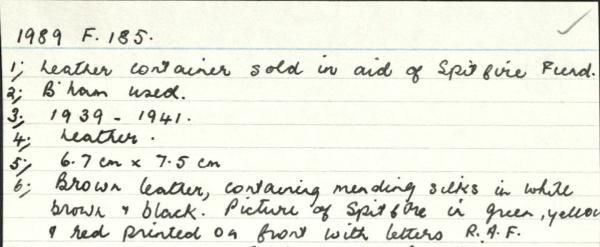 1989 F. 185.
1; Leather container sold in aid of Spitfire Fund.
2; B'ham used.
3; 1939 - 1941.
4; Leather.
5; 6.7 cm x 7.5 cm
6; Brown leather, containing mending silks in white
brown & black. Picture of Spitfire in green, yellow
& red printed on front with letters R.A.F.